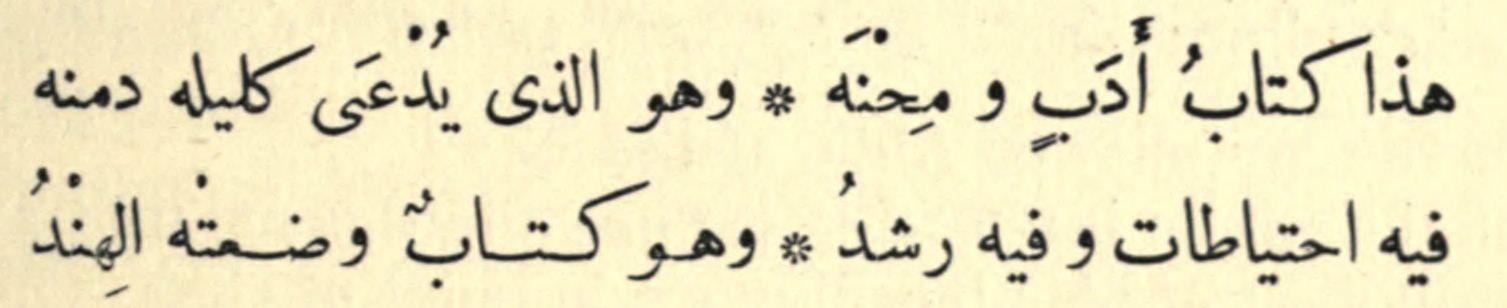 هذا كتابُ أَدَبٍ و مِحْنَه * وهو الذى يُدْعَى كليله دمنه
فيه احتياطات و فيه رشدُ * وهو كتابٌ وضعتْه الهِنْدُ